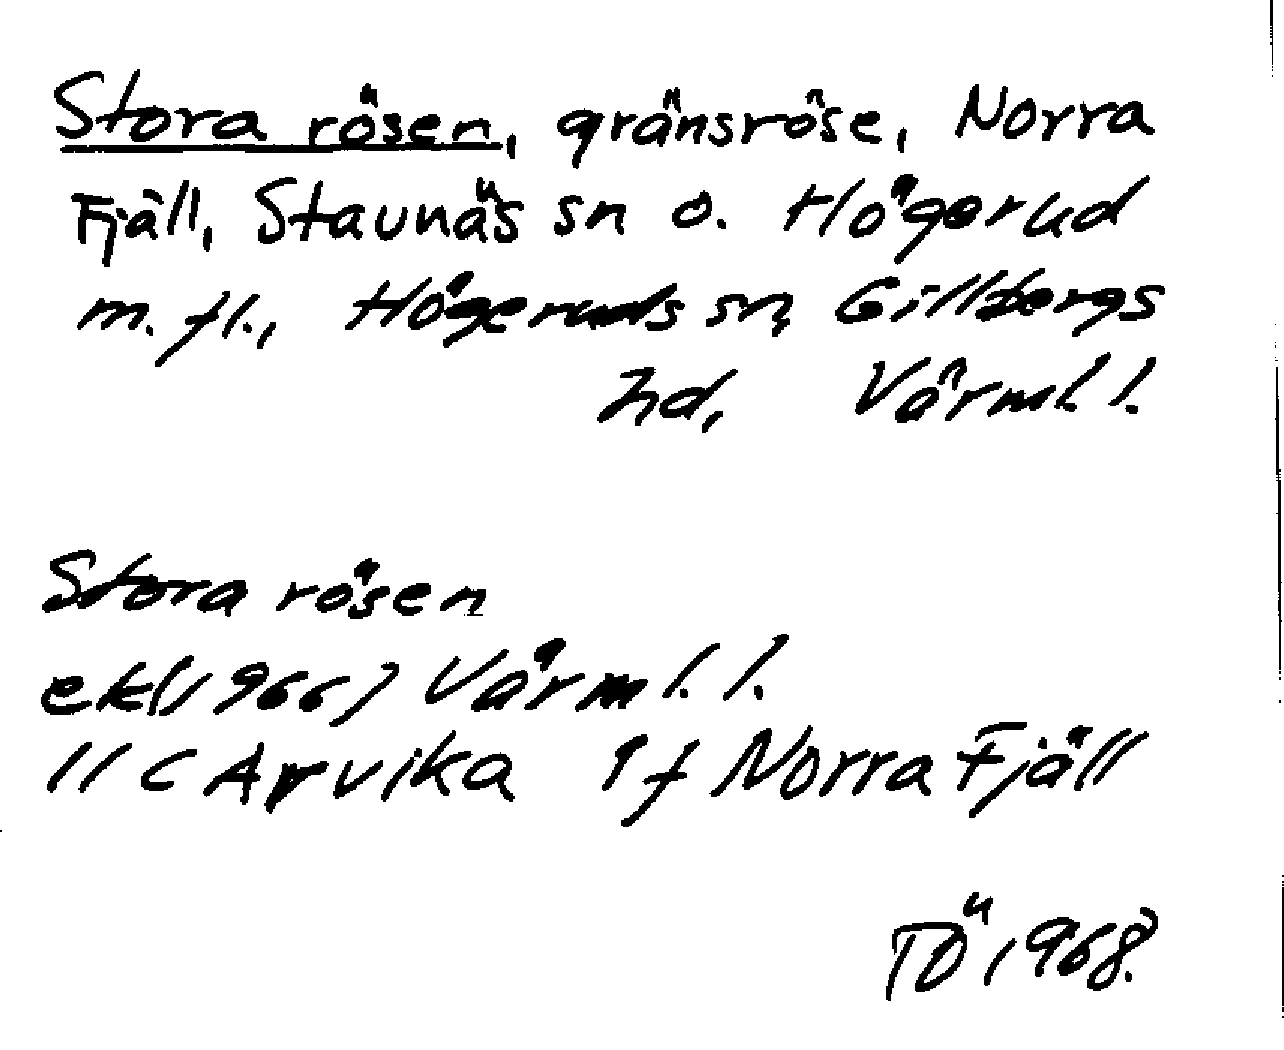 Stora rösen, gränsröse, Norra
Fjäll, Staunäs sn o. Högerud
m. fl., Högeruds sn, Gillbergs
hd, Värml. l.
Stora rösen
ek (1966) Värml. l.
11 C Arvika 1 f Norra Fjäll
TÖ 1968.